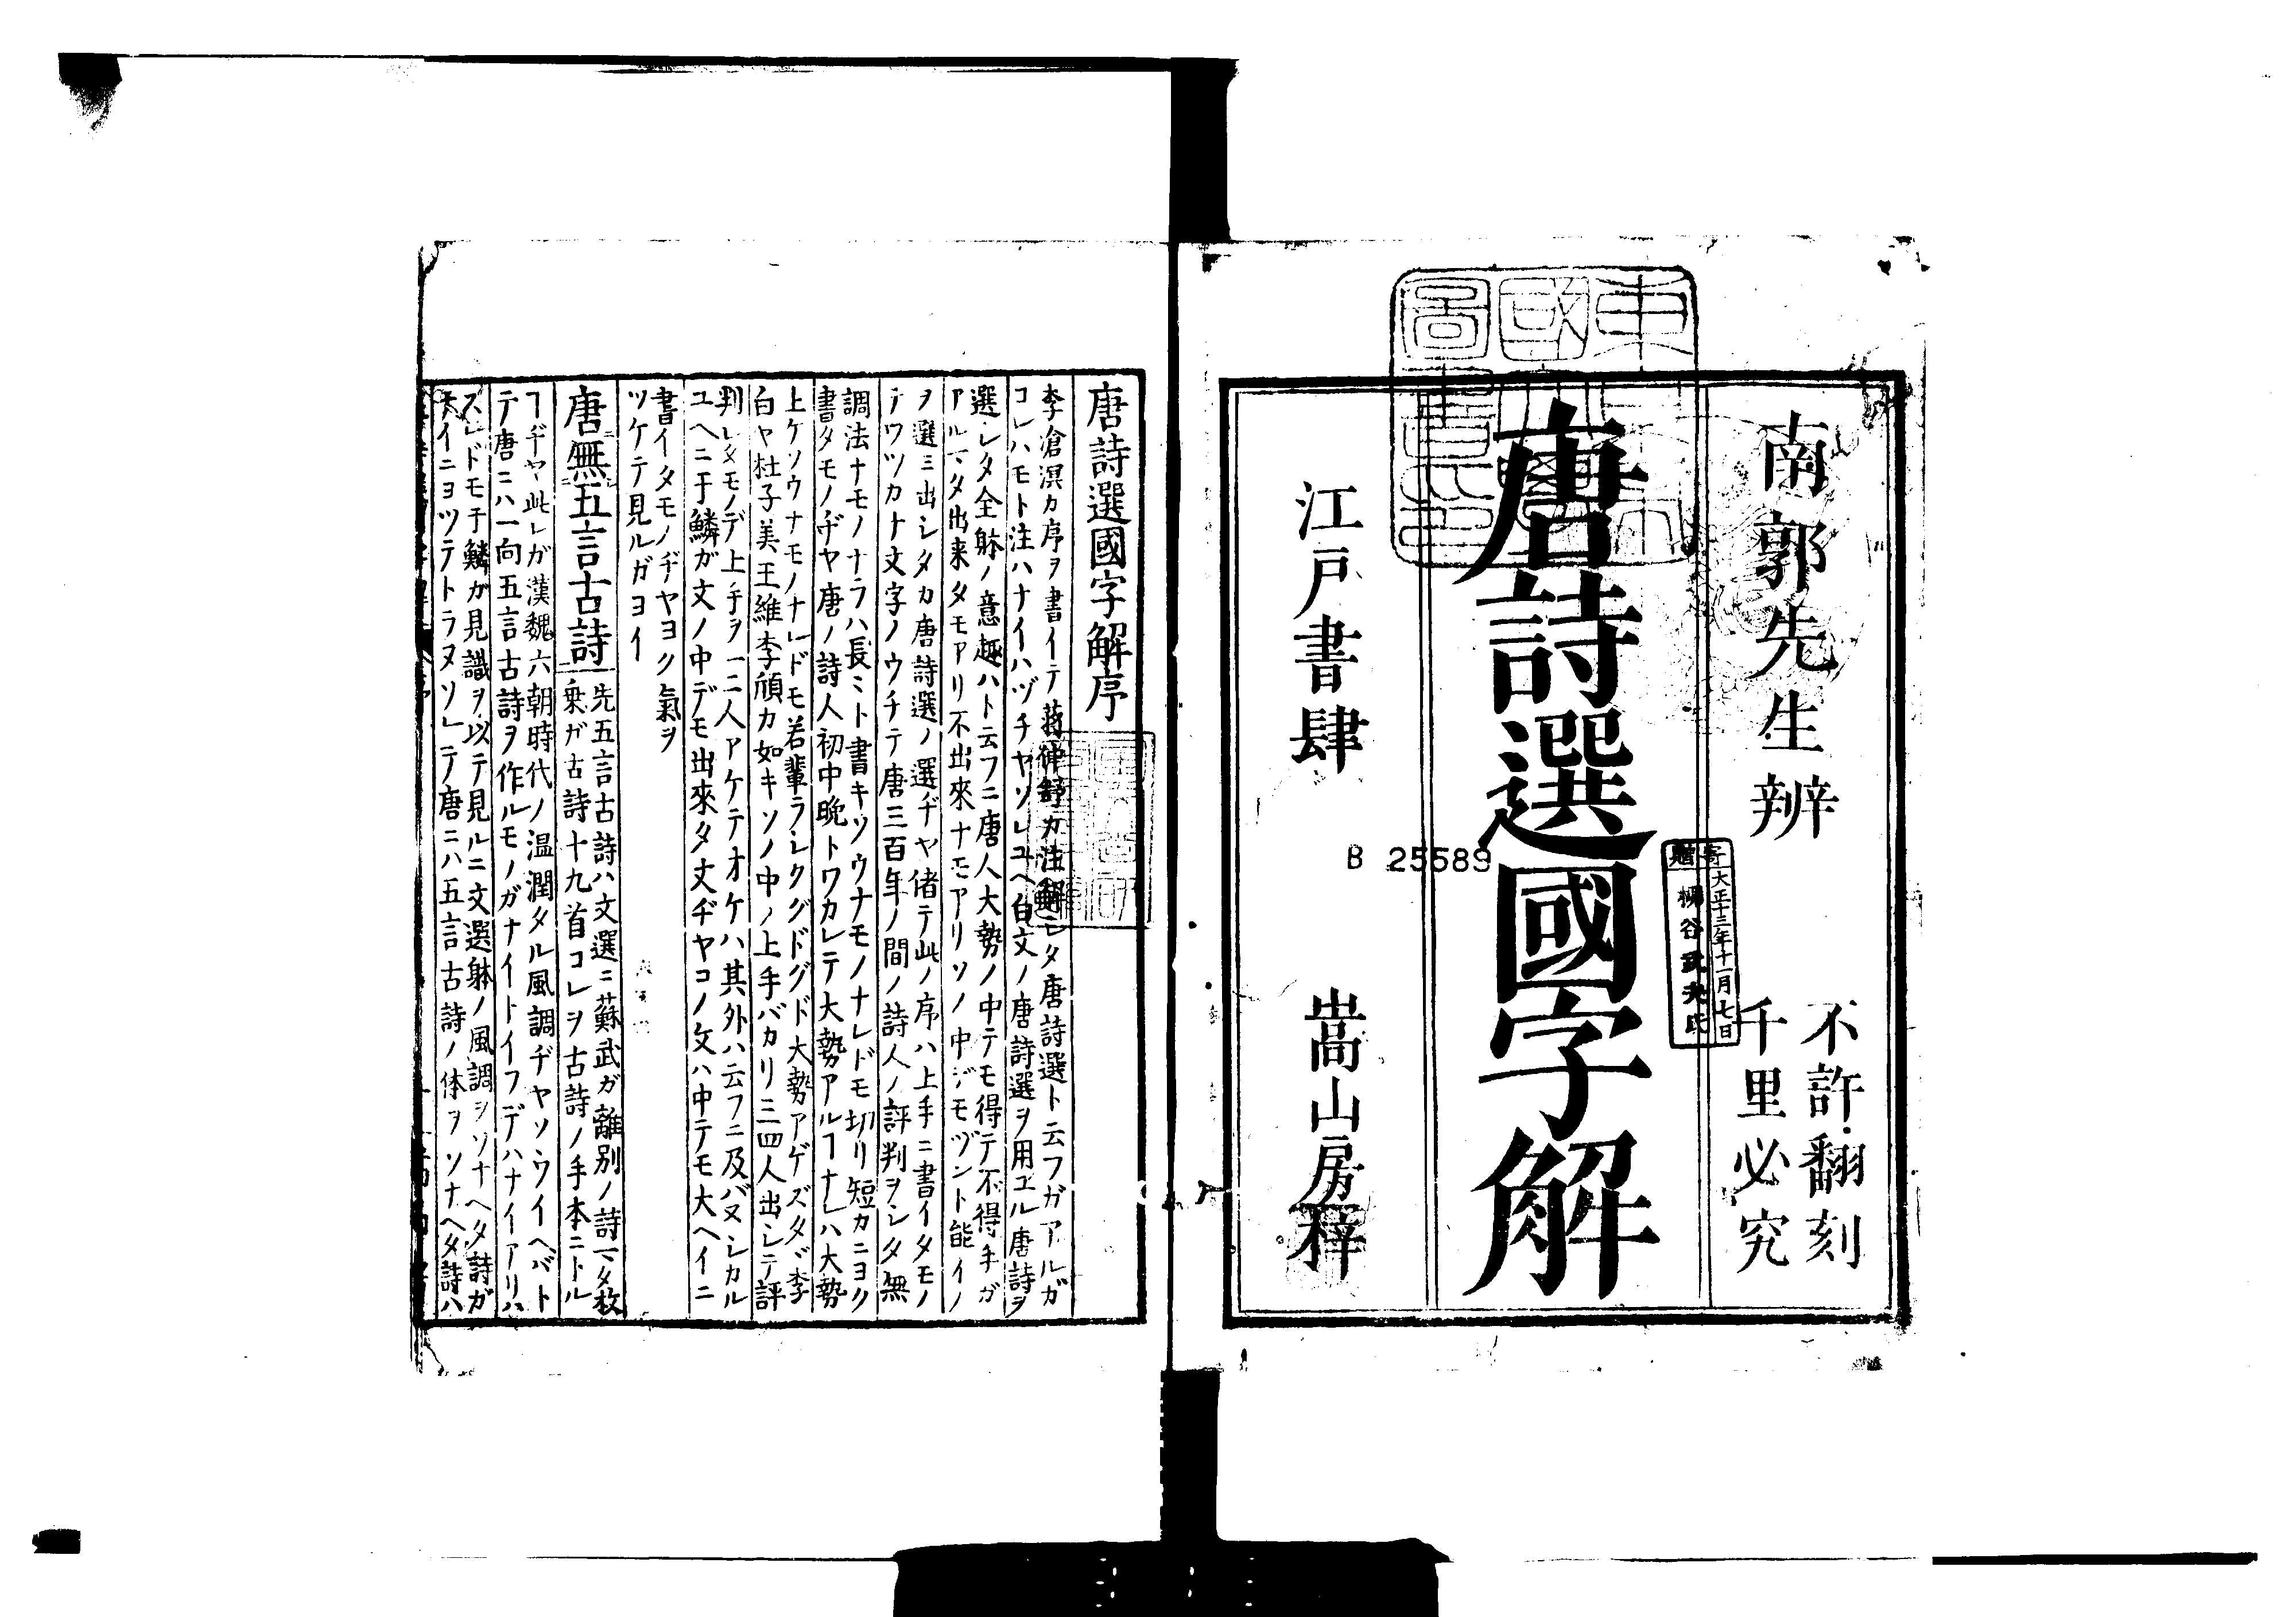 南郭先生辨
不許翻刻
千里必究
唐詩選國字解
江戸書肆
嵩山房梓
寄贈
大正十三年十一月七日
B 25589
唐詩選國字解序
李滄溟カ序ヲ書イテ蒋仲舒カ注解シタ唐詩選ト云フガアルガ
コレハモト注ハナイハヅヂヤソレユヘ白文ノ唐詩選ヲ用ユル唐詩ヲ
選レタ全躰ノ意趣ハト云フニ唐人大勢ノ中テモ得テ不得手ガ
アルマタ出来タモアリ不出來ナモアリソノ中デモヅント能イノ
ヲ選ミ出シタカ唐詩選ノ選ヂヤ偖テ此ノ序ハ上手ニ書イタモノ
テワツカナ文字ノウチテ唐三百年ノ間ノ詩人ノ評判ヲシタ無
調法ナモノナラハ長〻ト書キソウナモノナレドモ切リ短カニヨク
書タモノヂヤ唐ノ詩人初中晩トワカレテ大勢アルヿナレハ大勢
上ケソウナモノナレドモ若輩ラシクグドグド大勢アゲズタヾ李
白ヤ杜子美王維李頎カ如キソノ中ノ上手バカリ三四人出シテ評
判シタモノデ上手ヲ一二人アケテオケハ其外ハ云フニ及バヌシカル
ユヘニ于鱗ガ文ノ中デモ出來タ文ヂヤコノ文ハ中テモ大ヘイニ
書イタモノヂヤヨク氣ヲ
ツケテ見ルガヨイ
唐無五言古詩
先五言古詩ハ文選ニ蘇武ガ離別ノ詩マタ枚
乗ガ古詩十九首コレヲ古詩ノ手本ニトル
ヿヂヤ此レガ漢魏六朝時代ノ温潤タル風調ヂヤソウイヘバト
テ唐ニハ一向五言古詩ヲ作ルモノガナイトイフデハナイアリハ
スレドモ于鱗カ見識ヲ以テ見ルニ文選躰ノ風調ヲソナヘタ詩ガ
ナイニヨツテトラヌソレテ唐ニハ五言古詩ノ体ヲソナヘタ詩ハ